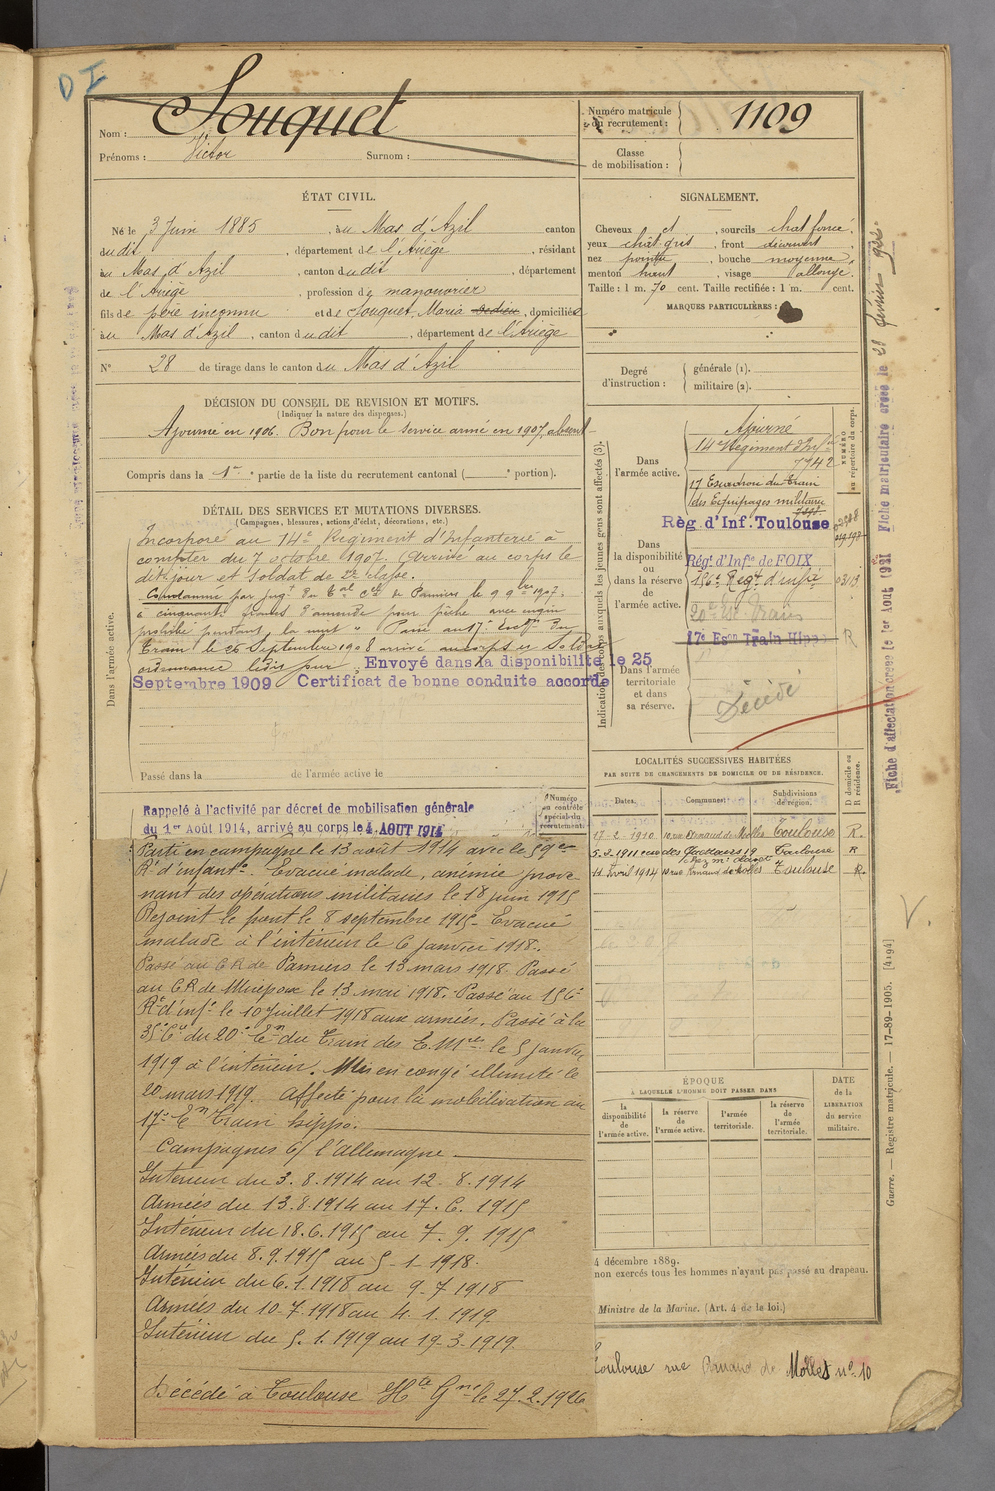 D I
Nom : Souquet
Prénoms : Victor Surnom :
Numéro matricule du recrutement : 1109
Classe de mobilisation :
ÉTAT CIVIL.
Né le 3 Juin 1885, au Mas d'Azil canton
dudit, département de l'Ariège, résidant
au Mas d'Azil, canton dudit, département
de l'Ariège, profession de manouvrier
fils de père inconnu et de Souquet, Maria, domiciliés
au Mas d'Azil, canton dudit, département de l'Ariège
N° 28 de tirage dans le canton du Mas d'Azil
SIGNALEMENT.
Cheveux et, sourcils chat foncé,
yeux chât gris, front découvert,
nez pointu, bouche moyenne,
menton haut, visage allongé.
Taille : 1 m. 70 cent. Taille rectifiée : 1 m. cent.
MARQUES PARTICULIÈRES :
Degré d'instruction : générale (1).
militaire (2).
DÉCISION DU CONSEIL DE REVISION ET MOTIFS.
(Indiquer la nature des dispenses.)
Ajourné en 1906. Bon pour le service armé en 1907, absent
Compris dans la 1re partie de la liste du recrutement cantonal ( e portion).
DÉTAIL DES SERVICES ET MUTATIONS DIVERSES.
(Campagnes, blessures, actions d'éclat, décorations, etc.)
Dans l'armée active.
Incorporé au 14e Régiment d'Infanterie à
compter du 7 octobre 1907. Arrivé au corps le
dit jour et Soldat de 2e classe.
Condamné par jugt du Tal Cel de Pamiers le 9 9bre 1907.
à cinquante francs d'amende pour pêche avec engin
prohibé pendant la nuit. Passé au 17e Escon du
Train le 26 Septembre 1908 arrivé au corps et Soldat
ordonnance ledit jour. Envoyé dans la disponibilité le 25
Septembre 1909 Certificat de bonne conduite accordé
Passé dans la de l'armée active le
Indication des corps auxquels les jeunes gens sont affectés (3).
NUMÉRO au répertoire du corps.
Dans l'armée active.
Ajourné
14e Régiment d'Infie
7942
17 Escadron du Train
des Equipages militaire
Dans la disponibilité ou dans la réserve de l'armée active.
Rég d'Inf. Toulouse
Régt d'Infie de FOIX
156e Regt d'infie
20e Esc Train
17e Eson Train Hippo
R
Dans l'armée territoriale et dans sa réserve.
Décédé
Fiche d'affectation créée le 1er Août 1921 Fiche matriculaire créée le 21 février 922
LOCALITÉS SUCCESSIVES HABITÉES
PAR SUITE DE CHANGEMENTS DE DOMICILE OU DE RÉSIDENCE.
Dates. Communes. Subdivisions de région. D domicile ou R résidence.
17-2-1910 10 rue Arnaud de Molles Toulouse R.
5.3.1911 rue des 19 Toulouse R
chez Mr
11 Avril 1914 10 rue Arnaud de Molles Toulouse R.
V.
Numéro au contrôle spécial du recrutement.
Rappelé à l'activité par décret de mobilisation générale
du 1er Août 1914, arrivé au corps le 4 AOUT 1914
Parti en campagne le 13 août 1914 avec le 59e
Rt d'infante. Evacué malade, anémie prove-
nant des opérations militaires le 18 juin 1915
Rejoint le front le 8 septembre 1915. Evacué
malade à l'intérieur le 6 janvier 1918.
Passé au C R de Pamiers le 13 mars 1918. Passé
au C R de Mirepoix le 13 mai 1918. Passé au 156e
Rt d'infe le 10 juillet 1918 aux armées. Passé à la
35e Cie du 20e En du Train des E. Mres le 5 janvier
1919 à l'intérieur. Mis en congé illimité le
20 mars 1919. Affecté pour la mobilisation au
17e En Train hippo.
Campagnes C/ l'Allemagne.
Intérieur du 3.8.1914 au 12.8.1914
Armées du 13.8.1914 au 17.6.1915
Intérieur du 18.6.1915 au 7.9.1915
Armées du 8.9.1915 au 5-1-1918.
Intérieur du 6.1.1918 au 9-7-1918
Armées du 10-7-1918 au 4.1.1919.
Intérieur du 5.1.1919 au 19-3-1919.
Décédé à Toulouse Hte Gne le 27.2.1926
ÉPOQUE
À LAQUELLE L'HOMME DOIT PASSER DANS
la disponibilité de l'armée active. la réserve de l'armée active. l'armée territoriale. la réserve de l'armée territoriale.
DATE de la LIBÉRATION du service militaire.
4 décembre 1889.
non exercés tous les hommes n'ayant pas passé au drapeau.
Ministre de la Marine. (Art. 4 de le loi.)
Guerre. — Registre matricule. — 17-89-1905. [4194]
Toulouse rue Arnaud de Molles no 10